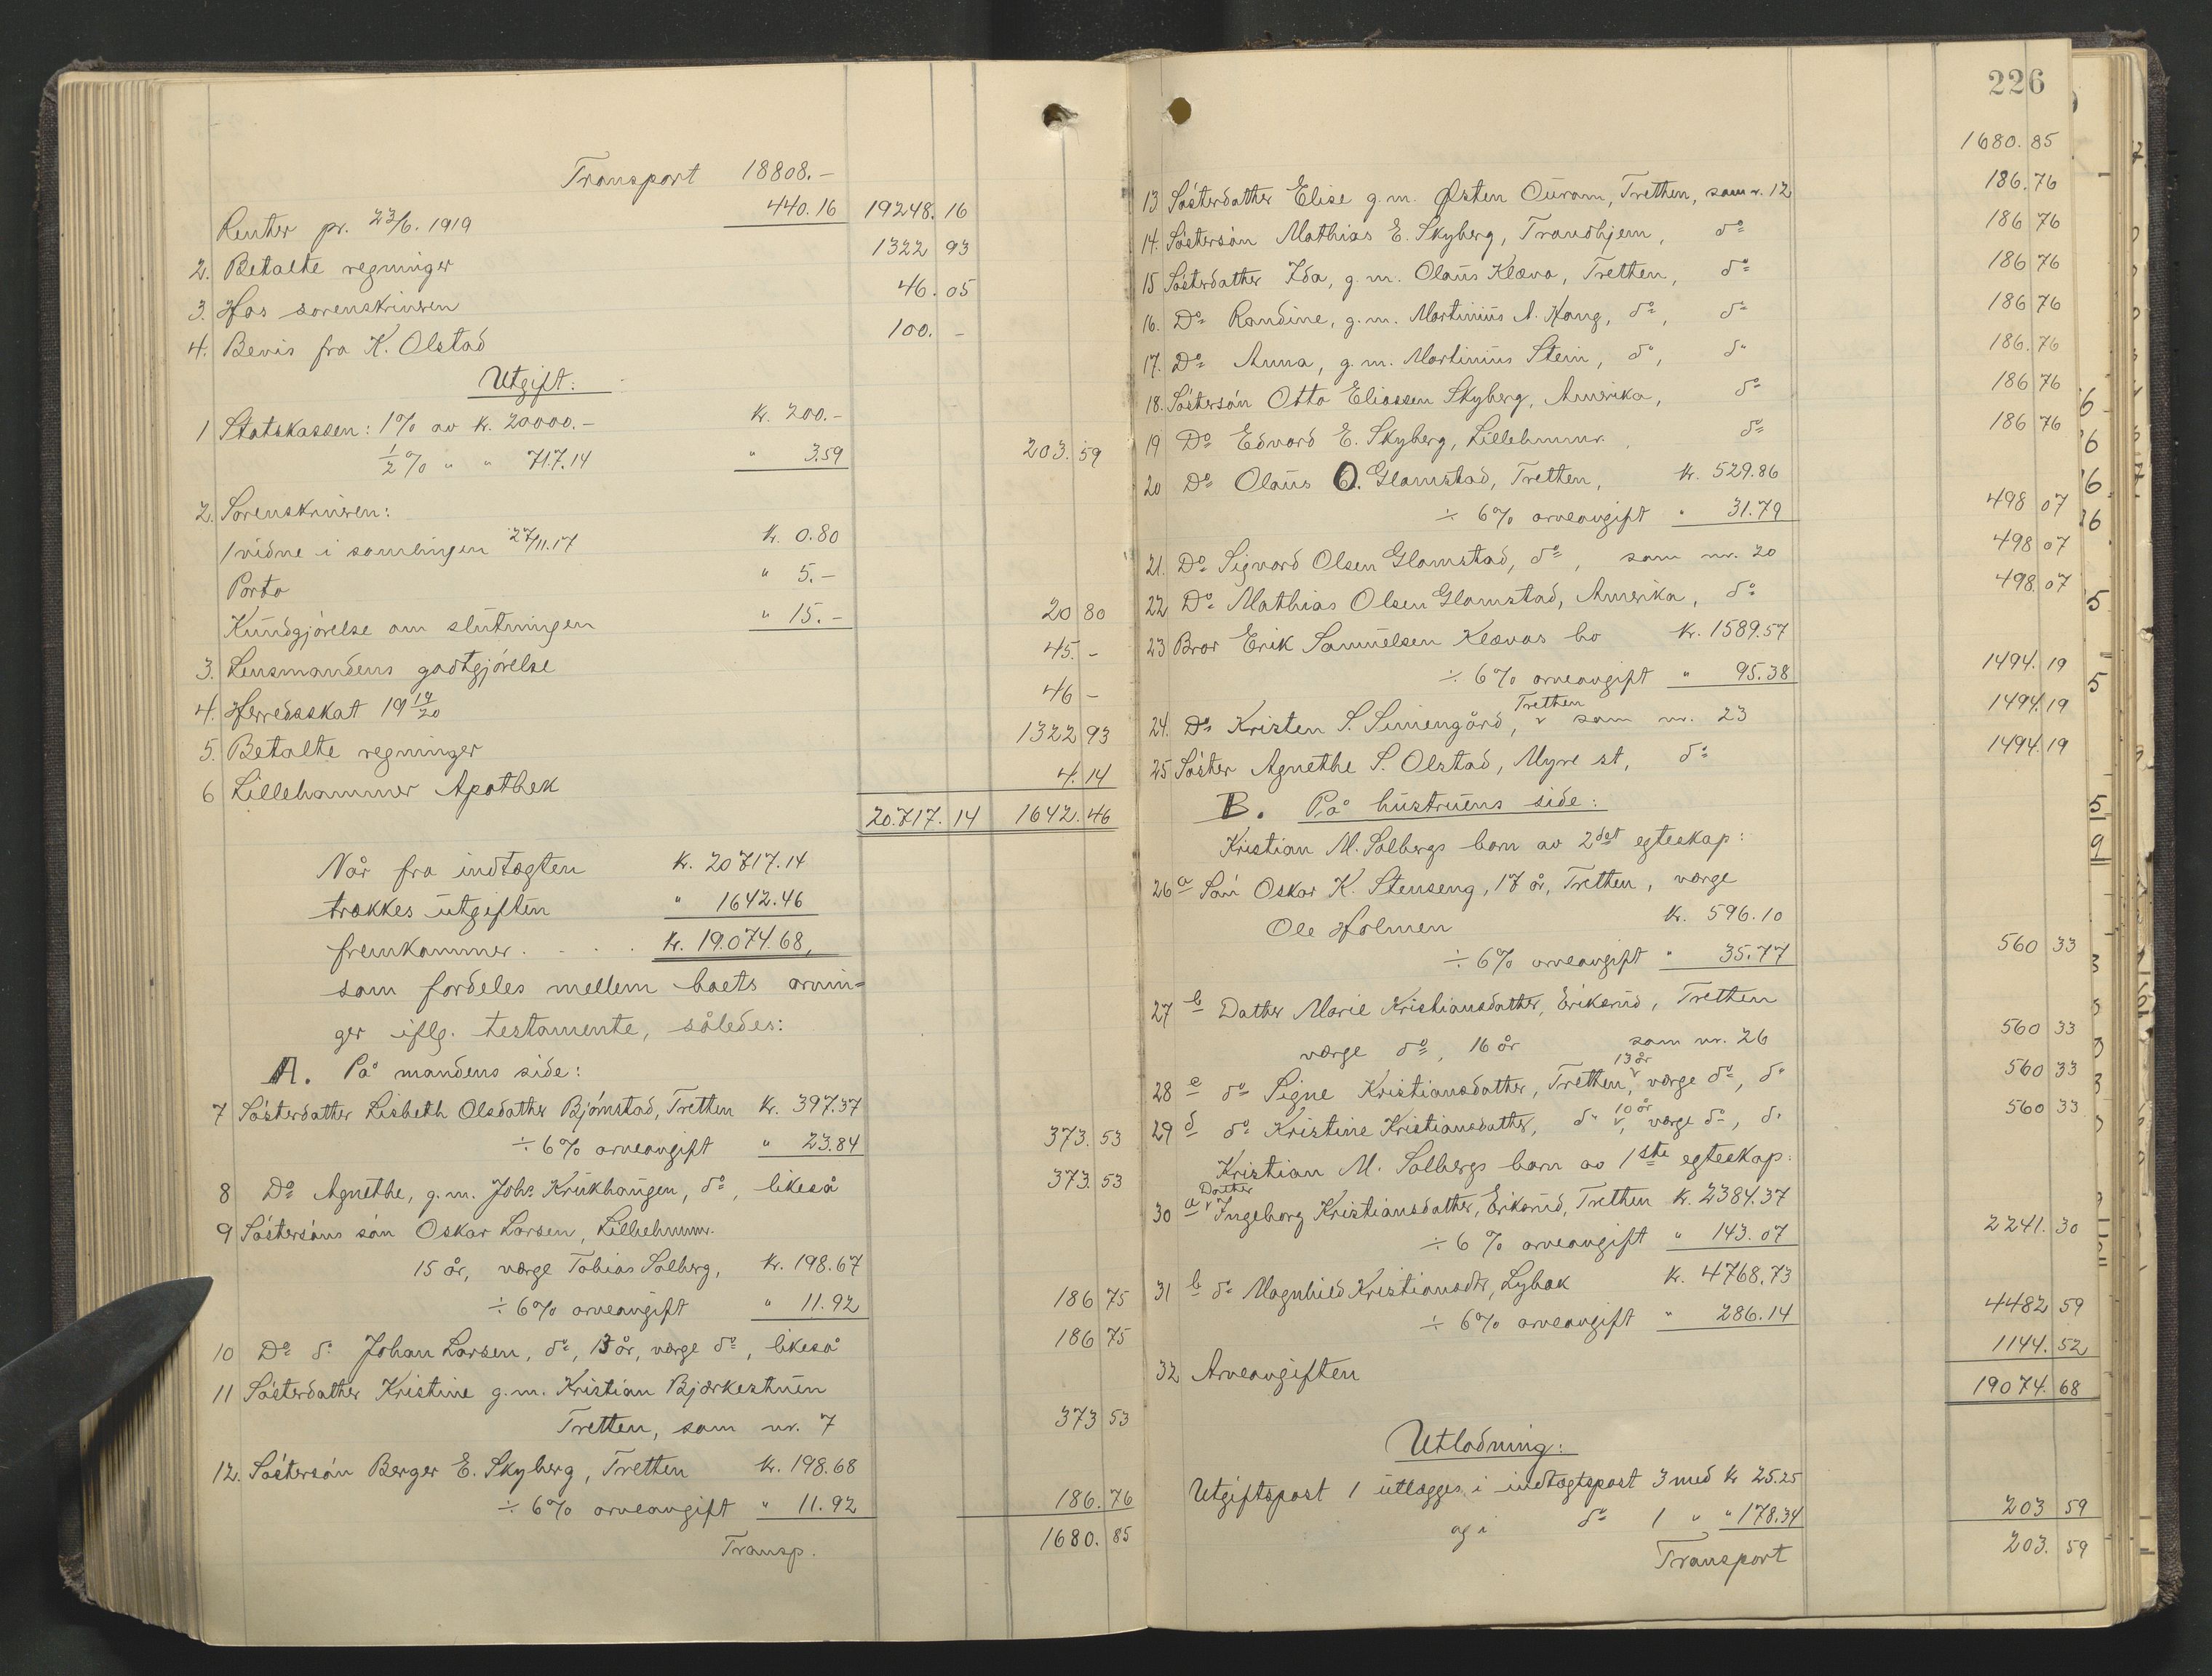 Transport 18808.-
Renter pr. 23/6. 1919 440.16 19248.16
2. Betalte regninger 1322 93
3. Hos sorenskriveren 46.05
4. Bevis fra K. Olstad 100.-
Utgift:
1 Statskassen: 1% av kr. 20000.- kr. 200.-
½% " " 717.14 " 3.59 203.59
2. Sorenskriveren:
1 vidne i samlingen 27/11.17 kr. 0.80
Porto " 5.-
Kundgjörelse om slutningen " 15.- 20 80
3. Lensmandens godtgjörelse 45.-
4. Herredsskat 19 19/20 46 -
5. Betalte regninger 1322 93
6 Lillehammer Apothek 4.14
20.717.14 1642.46
Når fra indtægten kr. 20717.14
trækkes utgiften " 1642.46
fremkommer . . . . kr. 19.074.68,
som fordeles mellem boets arvin=
ger iflg. testamente, således:
A. På mandens side:
7 Sösterdatter Lisbeth Olsdatter Björnstad, Tretten kr. 397.37
÷ 6% arveavgift " 23.84 373.53
8 Do Agnethe, g.m. Johs. Krukhaugen, do, likeså 373.53
9 Söstersöns sön Oskar Larsen, Lillehmmr.
15 år, værge Tobias Solberg, kr. 198.67
÷ 6% arveavgift " 11.92 186 75
10 Do do Johan Larsen, do, 13 år, værge do, likeså 186 75
11 Sösterdatter Kristine g.m. Kristian Bjørkestuen
Tretten, som nr. 7 373 53
12. Söstersön Berger E. Skyberg, Tretten kr. 198.68
÷ 6% arveavgift " 11.92 186.76
Transp. 1680.85
226
1680.85
13 Sösterdatter Elise g.m. Østen Ouram, Tretten, som nr. 12 186.76
14. Söstersön Mathias E. Skyberg, Trondhjem, do 186 76
15 Sösterdatter Ida, g.m. Olaus Kleva, Tretten, do 186 76
16. Do Randine, g.m. Martinius A. Haug, do, do 186 76
17. Do Anna, g.m. Martinius Stein, do, do 186.76
18. Söstersön Otto Eliassen Skyberg, Amerika, do 186 76
19 Do Edvard E. Skyberg, Lillehmmr., do 186 76
20 Do Olaus O. Glomstad, Tretten, kr. 529.86
÷ 6% arveavgift " 31.79 498 07
21. Do Sigvard Olsen Glomstad, do, som nr. 20 498 07
22 Do Mathias Olsen Glomstad, Amerika, do 498.07
23 Bror Erik Samuelsen Klevas bo kr. 1589.57
÷ 6% arveavgift " 95.38 1494.19
Tretten
24. Do Kristen S. Simengård, v som nr. 23 1494.19
25 Söster Agnethe S. Olstad, Myre st, do 1494.19
B. På hustruens side:
Kristian M. Solbergs barn av 2det egteskap:
26 a Sön Oskar K. Stenseng, 17 år, Tretten, værge
Ole Holmen kr. 596.10
÷ 6% arveavgift " 35.77 560 33
27 b Datter Marie Kristiansdatter, Eriksrud, Tretten
værge do, 16 år som nr. 26 560 33
13 år
28 c do Signe Kristiansdatter, Tretten, v værge do, do 560 33
10 år
29 d do Kristine Kristiansdatter, do v, værge do, do 560 33
Kristian M. Solbergs barn av 1ste egteskap.
Datter
30 a v Ingeborg Kristiansdatter, Eriksrud, Tretten kr. 2384.37
÷ 6 % arveavgift " 143.07 2241.30
31 b do Magnhild Kristiansdtr, Lybæk kr. 4768.73
÷ 6% arveavgift " 286.14 4482 59
32 Arveavgiften 1144.52
19074.68
Utlodning:
Utgiftspost 1 utlægges i indtægtspost 3 med kr 25.25
og i do 1 " " 178.34 203 59
Transport 203.59